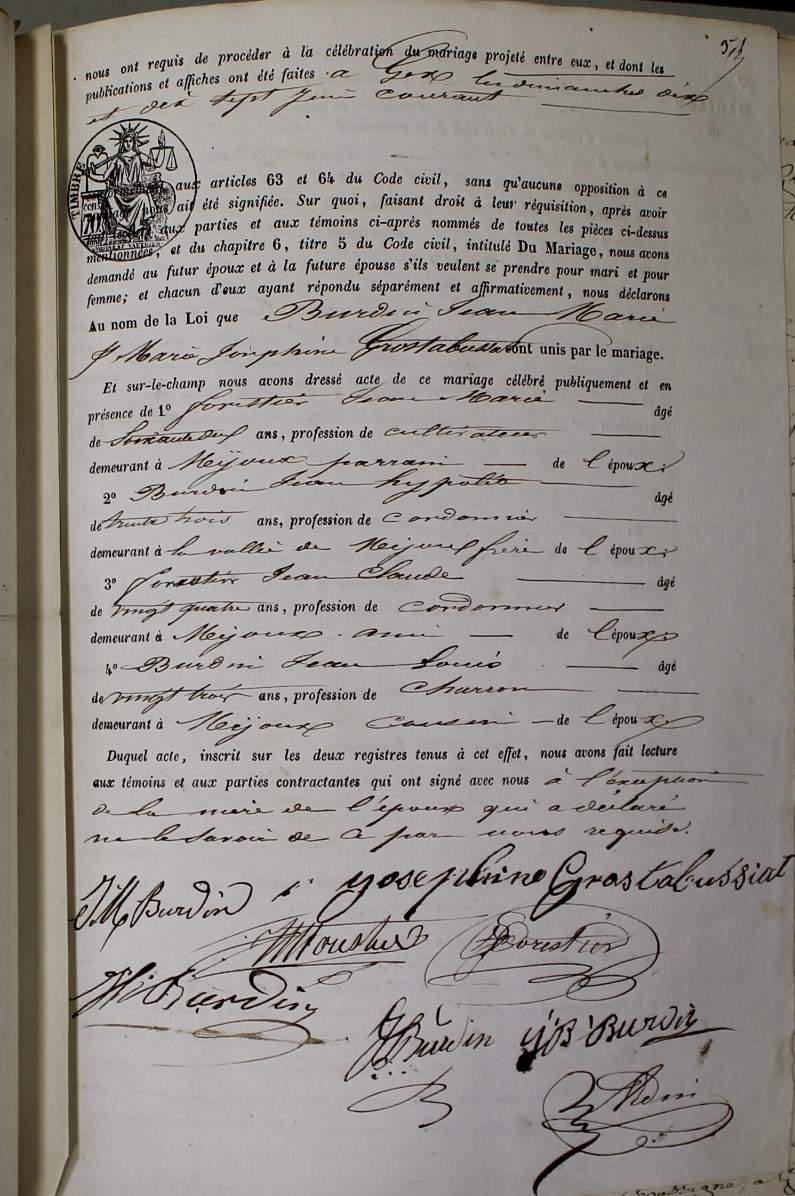 nous ont requis de procéder à la célébration du mariage projeté entre eux, et dont les
publications et affiches ont été faites a Gex les dimanches dix
et dix sept Juin courant
TIMBRE
aux articles 63 et 64 du Code civil, sans qu'aucune opposition à ce
ait été signifiée. Sur quoi, faisant droit à leur réquisition, après avoir
aux parties et aux témoins ci-après nommés de toutes les pièces ci-dessus
mentionnées, et du chapitre 6, titre 5 du Code civil, intitulé Du Mariage, nous avons
demandé au futur époux et à la future épouse s'ils veulent se prendre pour mari et pour
femme; et chacun d'eux ayant répondu séparément et affirmativement, nous déclarons
Au nom de la Loi que Burdin Jean Marie
& Marie Joséphine Grostabussiat sont unis par le mariage.
Et sur-le-champ nous avons dressé acte de ce mariage célébré publiquement et en
présence de 1º forestier Jean Marie âgé
de Soixante deux ans, profession de cultivateur
demeurant à Mijoux parrain de l'époux
2º Burdin Jean hypolite âgé
de trente trois ans, profession de Cordonnier
demeurant à la vallée de Mijoux frère de l'époux
3º forestier Jean Claude âgé
de vingt quatre ans, profession de Cordonnier
demeurant à Mijoux ami de l'époux
4º Burdin Jean Louis âgé
de vingt trois ans, profession de Charron
demeurant à Mijoux cousin de l'époux
Duquel acte, inscrit sur les deux registres tenus à cet effet, nous avons fait lecture
aux témoins et aux parties contractantes qui ont signé avec nous à l'exception
de la mère de l'époux qui a déclaré
ne le savoir de ce par nous requise.
JM Burdin Josephine Grostabussiat
Forestier
Hte Burdin
JL Burdin J B Burdin